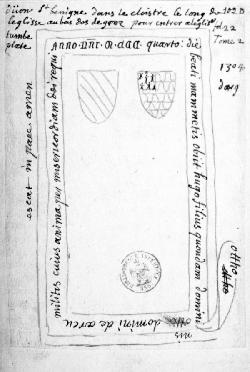 Dijon St benigne dans le cloistre le long de
leglise au bas des degrez pour entrer a leglise
tumbe
plate
Tome 2
1304
Anno Dni M CCC quarto die
beati mammetis obiit hugo filius quondam domini
domini de arcu
militis cuius anima per misericordiam dei requi
escat in pace amen
otthonis
ottho